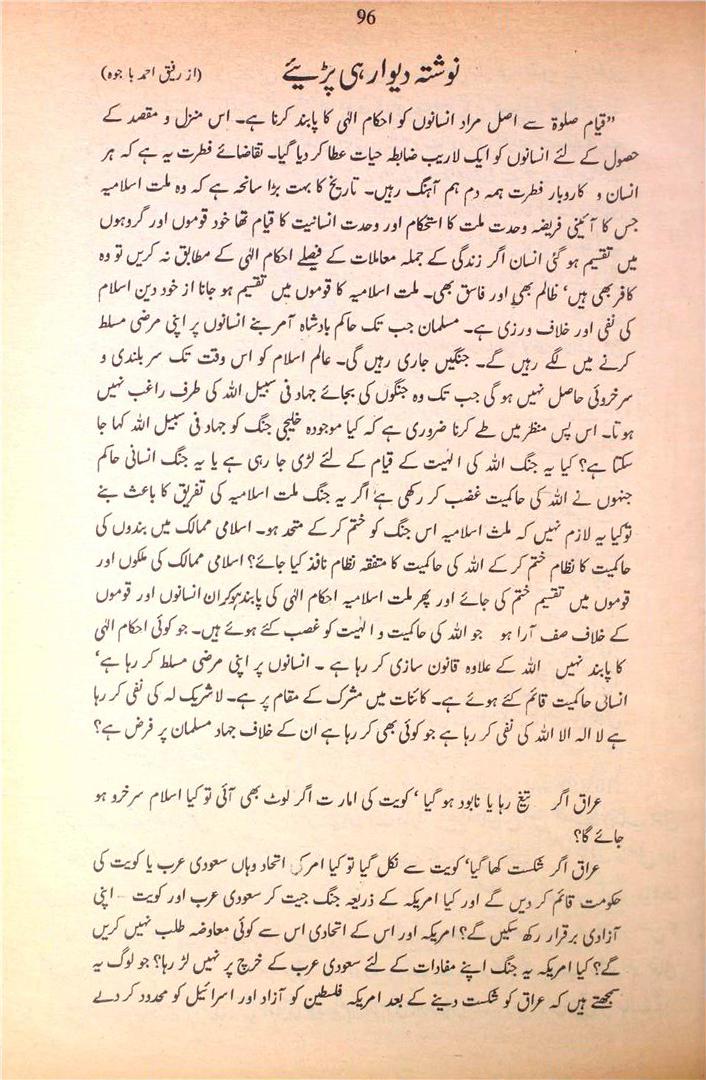 96
نوشتہ دیوار ہی پڑیئے
(از رفیق احمد باجوہ)
”قیام صلوۃ سے اصل مراد انسانوں کو احکام الٰہی کا پابند کرنا ہے۔ اس منزل و مقصد کے
حصول کے لئے انسانوں کو ایک لاریب ضابطہ حیات عطا کر دیا گیا۔ تقاضائے فطرت یہ ہے کہ ہر
انسان و کاروبار فطرت ہمہ دم ہم آہنگ رہیں۔ تاریخ کا بہت بڑا سانحہ ہے کہ وہ ملت اسلامیہ
جس کا آئینی فریضہ وحدت ملت کا استحکام اور وحدت انسانیت کا قیام تھا خود قوموں اور گروہوں
میں تقسیم ہو گئی انسان اگر زندگی کے جملہ معاملات کے فیصلے احکام الٰہی کے مطابق نہ کریں تو وہ
کافر بھی ہیں‘ ظالم بھی اور فاسق بھی۔ ملت اسلامیہ کا قوموں میں تقسیم ہو جانا از خود دین اسلام
کی نفی اور خلاف ورزی ہے۔ مسلمان جب تک حاکم بادشاہ آمر بنے انسانوں پر اپنی مرضی مسلط
کرنے میں لگے رہیں گے۔ جنگیں جاری رہیں گی۔ عالم اسلام کو اس وقت تک سربلندی و
سرخروئی حاصل نہیں ہو گی جب تک وہ جنگوں کی بجائے جہاد فی سبیل اللہ کی طرف راغب نہیں
ہوتا۔ اس پس منظر میں طے کرنا ضروری ہے کہ کیا موجودہ خلیجی جنگ کو جہاد فی سبیل اللہ کہا جا
سکتا ہے؟ کیا یہ جنگ اللہ کی الٰہیت کے قیام کے لئے لڑی جا رہی ہے یا یہ جنگ انسانی حاکم
جنہوں نے اللہ کی حاکمیت غصب کر رکھی ہے اگر یہ جنگ ملت اسلامیہ کی تفریق کا باعث بنے
تو کیا یہ لازم نہیں کہ ملت اسلامیہ اس جنگ کو ختم کر کے متحد ہو۔ اسلامی ممالک میں بندوں کی
حاکمیت کا نظام ختم کر کے اللہ کی حاکمیت کا متفقہ نظام نافذ کیا جائے؟ اسلامی ممالک کی ملکوں اور
قوموں میں تقسیم ختم کی جائے اور پھر ملت اسلامیہ احکام الٰہی کی پابند ہو کر ان انسانوں اور قوموں
کے خلاف صف آرا ہو جو اللہ کی حاکمیت و الٰہیت کو غصب کئے ہوئے ہیں۔ جو کوئی احکام الٰہی
کا پابند نہیں اللہ کے علاوہ قانون سازی کر رہا ہے ۔ انسانوں پر اپنی مرضی مسلط کر رہا ہے‘
انسانی حاکمیت قائم کئے ہوئے ہے۔ کائنات میں مشرک کے مقام پر ہے۔ لاشریک لہ کی نفی کر رہا
ہے لا الہ الا اللہ کی نفی کر رہا ہے جو کوئی بھی کر رہا ہے ان کے خلاف جہاد مسلمان پر فرض ہے؟
عراق اگر تیغ رہا یا نابود ہو گیا ‘ کویت کی امارت اگر لوٹ بھی آئی تو کیا اسلام سرخرو ہو
جائے گا؟
عراق اگر شکست کھا گیا‘ کویت سے نکل گیا تو کیا امرکی اتحاد وہاں سعودی عرب یا کویت کی
حکومت قائم کر دیں گے اور کیا امریکہ کے ذریعہ جنگ جیت کر سعودی عرب اور کویت اپنی
آزادی برقرار رکھ سکیں گے؟ امریکہ اور اس کے اتحادی اس سے کوئی معاوضہ طلب نہیں کریں
گے؟ کیا امریکہ یہ جنگ اپنے مفادات کے لئے سعودی عرب کے خرچ پر نہیں لڑ رہا؟ جو لوگ یہ
سمجھتے ہیں کہ عراق کو شکست دینے کے بعد امریکہ فلسطین کو آزاد اور اسرائیل کو محدود کر دے